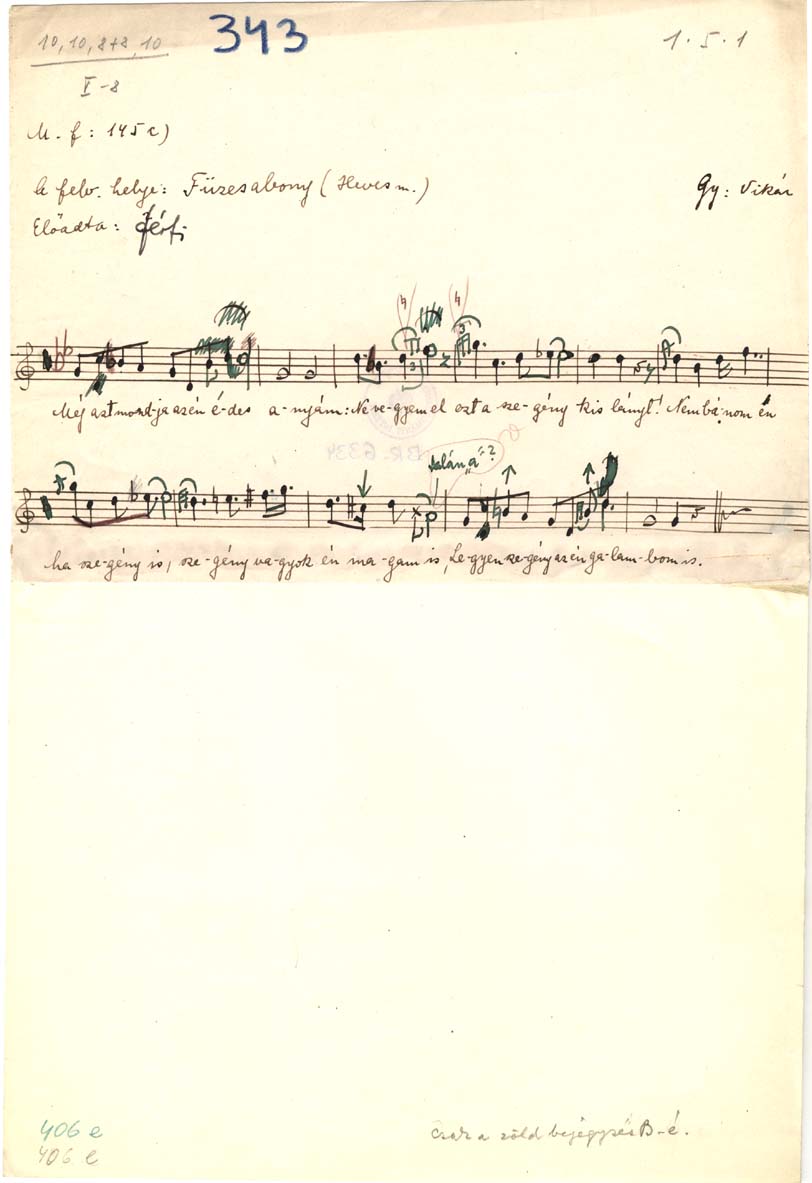 10, 10, 8+8, 10
343
1. 5. 1
V-8
M. f: 145 c)
A felv. helye: Füzesabony (Heves m.)
Gy: Vikár
Előadta: férfi
Még aztmondja azén é-des a-nyám: Ne ve-gyem el ezt a sze-gény kis lányt! Nem bá-nom én
talán "a"?
ha sze-gény is, sze-gény va-gyok én ma-gam is, Le-gyen sze-gény azén ga-lam-bom is.
406 e
406 e
Csak a zöld bejegyzés B-é.